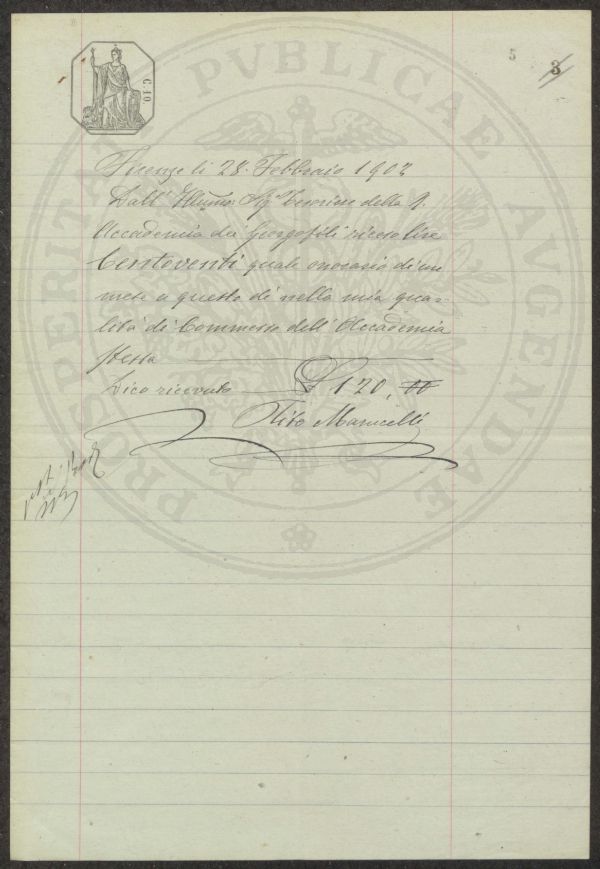 PROSPERITATI PVBLICAE AVGENDAE
C. 10
5
3
Firenze li 28. Febbraio 1902
Dall' Illuño. Sigr Tesoriere della R.
Accademia dei Georgofili ricevo lire
Centoventi quale onorario di un
mese a questo di nella mia qua-
lità di Commesso dell' Accademia
stessa
Dico ricevuto £ 120, 00
Tito Marucelli